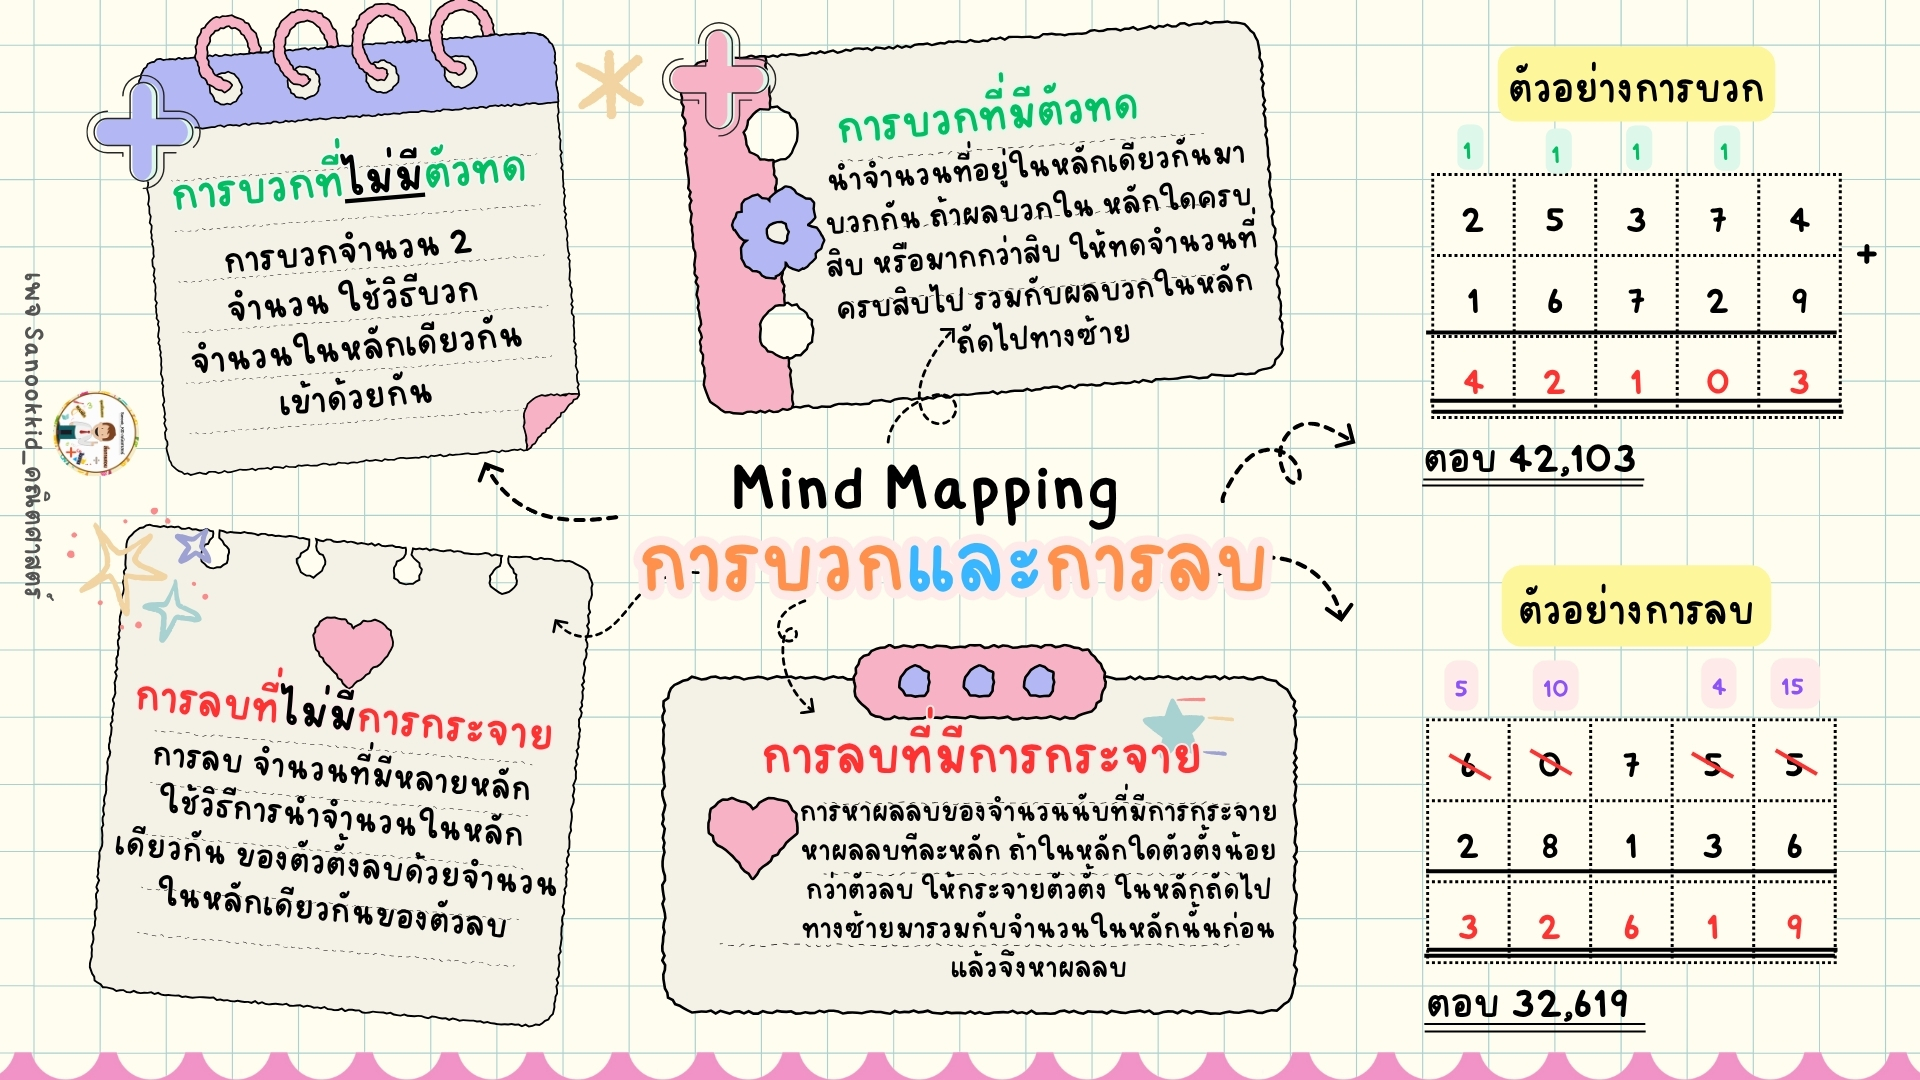 การบวกที่ไม่มีตัวทด
การบวกจำนวน 2
จำนวน ใช้วิธีบวก
จำนวนในหลักเดียวกัน
เข้าด้วยกัน
การบวกที่มีตัวทด
นำจำนวนที่อยู่ในหลักเดียวกันมา
บวกกัน ถ้าผลบวกใน หลักใดครบ
สิบ หรือมากกว่าสิบ ให้ทดจำนวนที่
ครบสิบไป รวมกับผลบวกในหลัก
ถัดไปทางซ้าย
ตัวอย่างการบวก
1 1 1 1
2 5 3 7 4
+
1 6 7 2 9
4 2 1 0 3
ตอบ 42,103
Mind Mapping
การบวกและการลบ
เพจ Sanookkid_คณิตศาสตร์
การลบที่ไม่มีการกระจาย
การลบ จำนวนที่มีหลายหลัก
ใช้วิธีการนำจำนวนในหลัก
เดียวกัน ของตัวตั้งลบด้วยจำนวน
ในหลักเดียวกันของตัวลบ
การลบที่มีการกระจาย
การหาผลลบของจำนวนนับที่มีการกระจาย
หาผลลบทีละหลัก ถ้าในหลักใดตัวตั้งน้อย
กว่าตัวลบ ให้กระจายตัวตั้ง ในหลักถัดไป
ทางซ้ายมารวมกับจำนวนในหลักนั้นก่อน
แล้วจึงหาผลลบ
ตัวอย่างการลบ
5 10 4 15
6 0 7 5 5
2 8 1 3 6
3 2 6 1 9
ตอบ 32,619